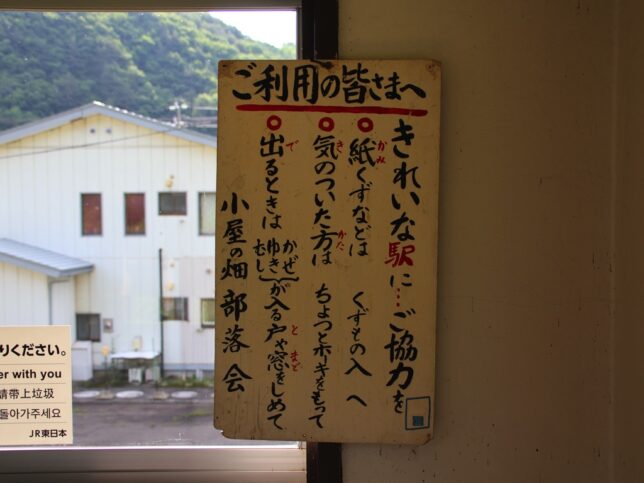 ご利用の皆さまへ
きれいな駅に…ご協力を
○紙くずなどは くずもの入へ
かみ
○気のついた方は ちょっとホーキをもって
き
かた
○出るときは かぜ ゆき むし が入る戸や窓をしめて
で
と
まど
小屋の畑部落会
りください。
er with you
請帶上垃圾
돌아가주세요
JR東日本